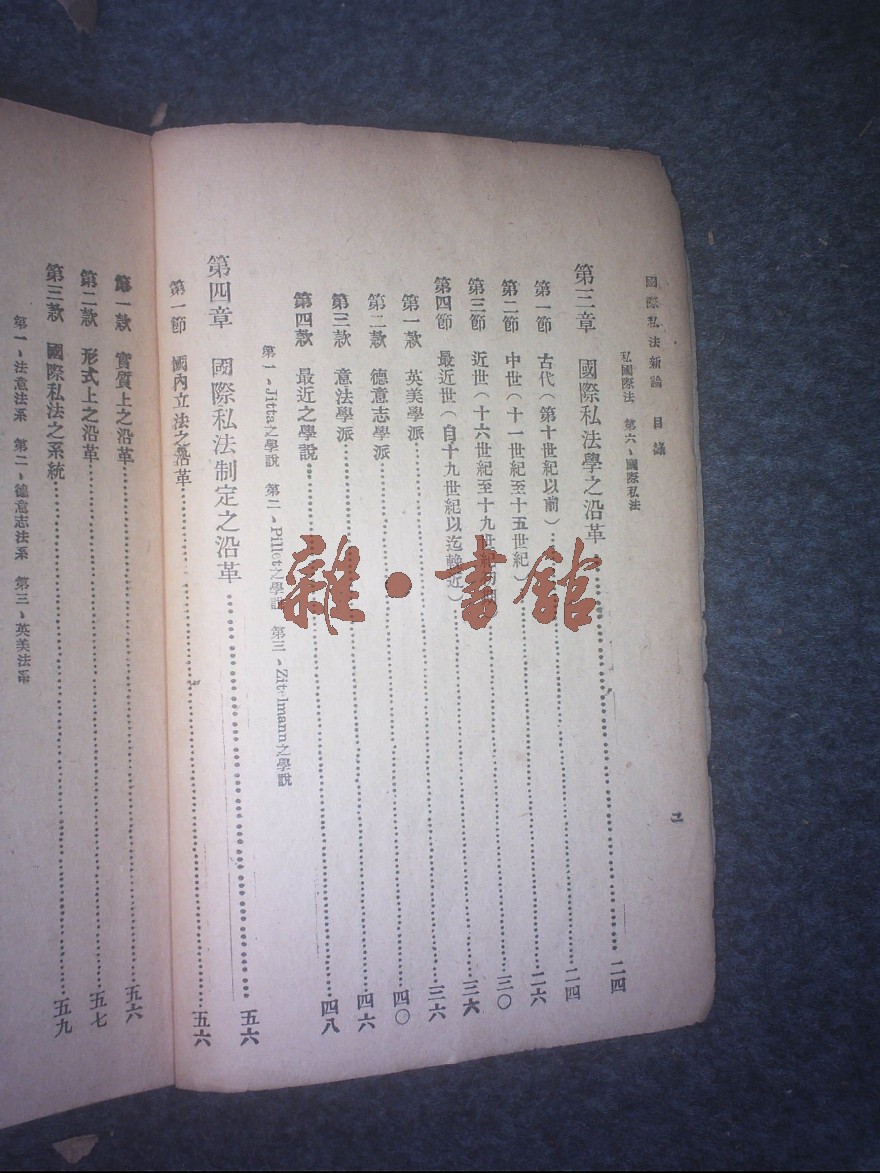 國際私法新論 目錄
二
私國際法 第六、國際私法
第三章 國際私法學之沿革……二四
第一節 古代(第十世紀以前)……二四
第二節 中世(十一世紀至十五世紀)……二六
第三節 近世(十六世紀至十九世紀……三〇
第四節 最近世(自十九世紀以迄輓近)……三六
第一款 英美學派……三六
第二款 德意志學派……四〇
第三款 意法學派……四六
第四款 最近之學說……四八
第一、Jitta之學說 第二、Pillet之學說 第三、Zitelmann之學說
第四章 國際私法制定之沿革……五六
第一節 國內立法之沿革……五六
第一款 實質上之沿革……五六
第二款 形式上之沿革……五七
第三款 國際私法之系統……五九
第一、法意法系 第二、德意志法系 第三、英美法系
雜·書館